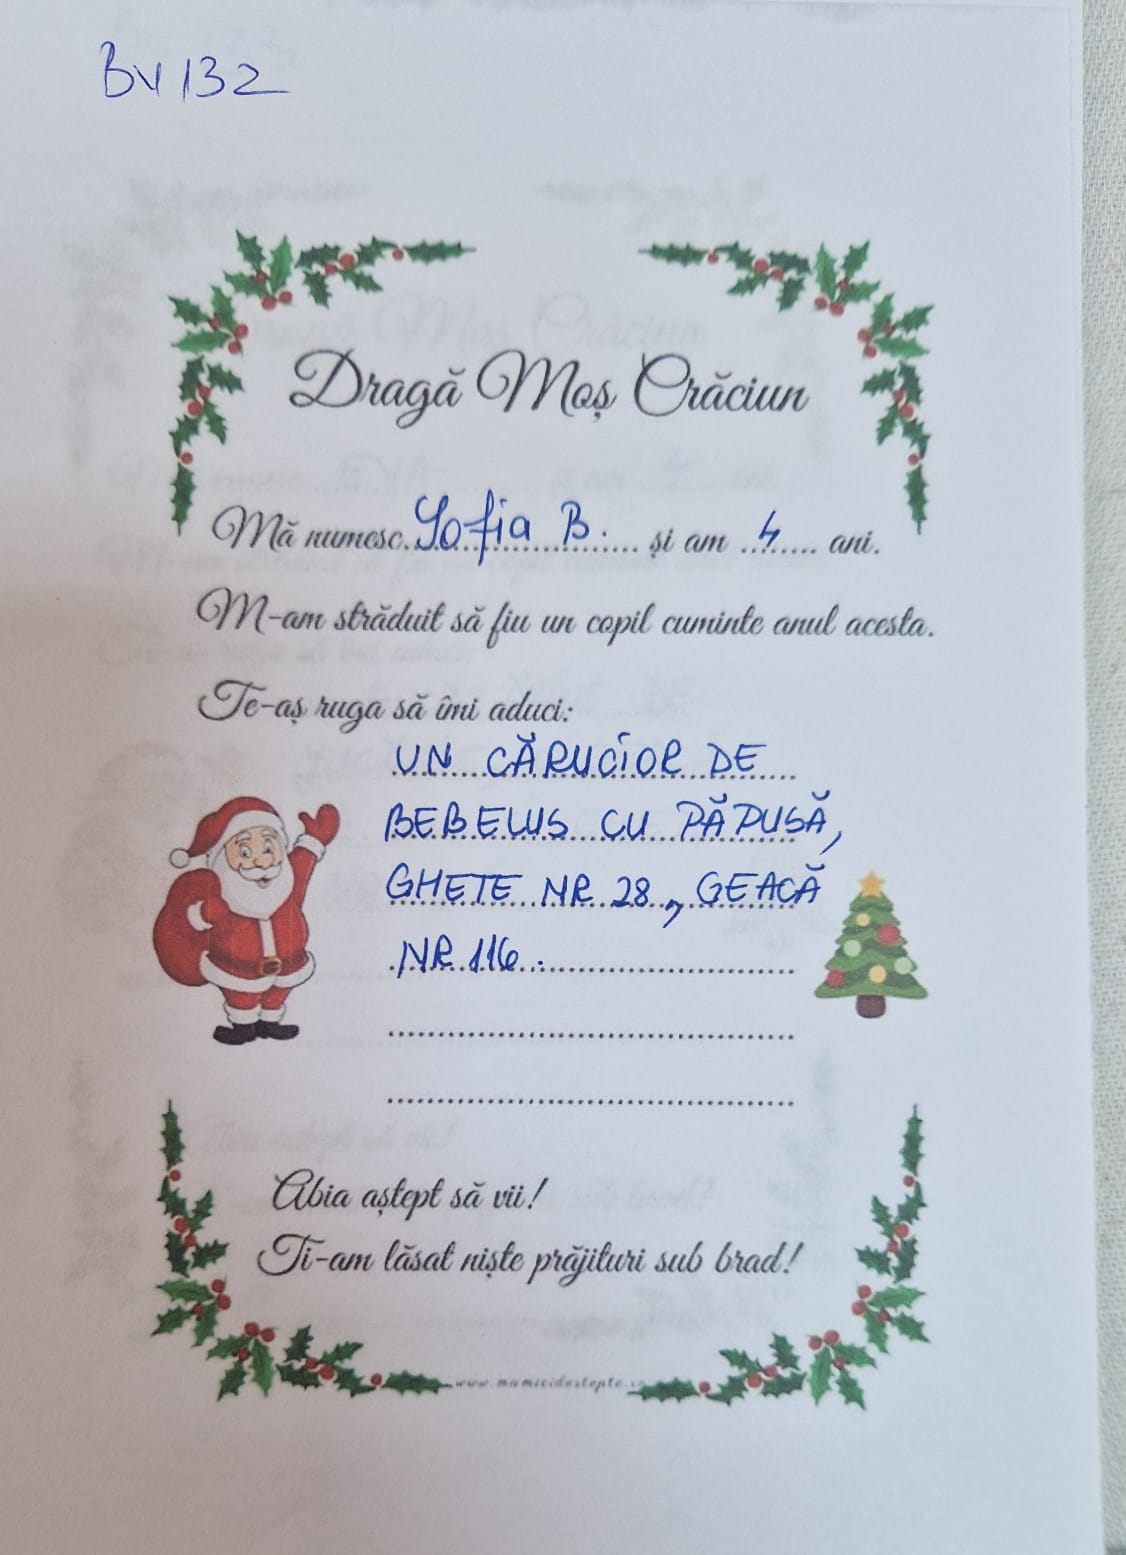 BV 132
Dragă Moș Crăciun
Mă numesc Sofia B. și am 4 ani.
M-am străduit să fiu un copil cuminte anul acesta.
Te-aș ruga să îmi aduci:
UN CĂRUCIOR DE
BEBELUS CU PĂPUSĂ,
GHETE NR 28, GEACĂ
NR 116.
Abia aștept să vii!
Ti-am lăsat niște prăjituri sub brad!